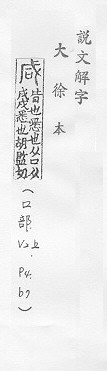 說文解字
大徐本
咸 皆也悉也从口从
戌戌悉也胡監切
(口部
V2上.
P4.
b9
)